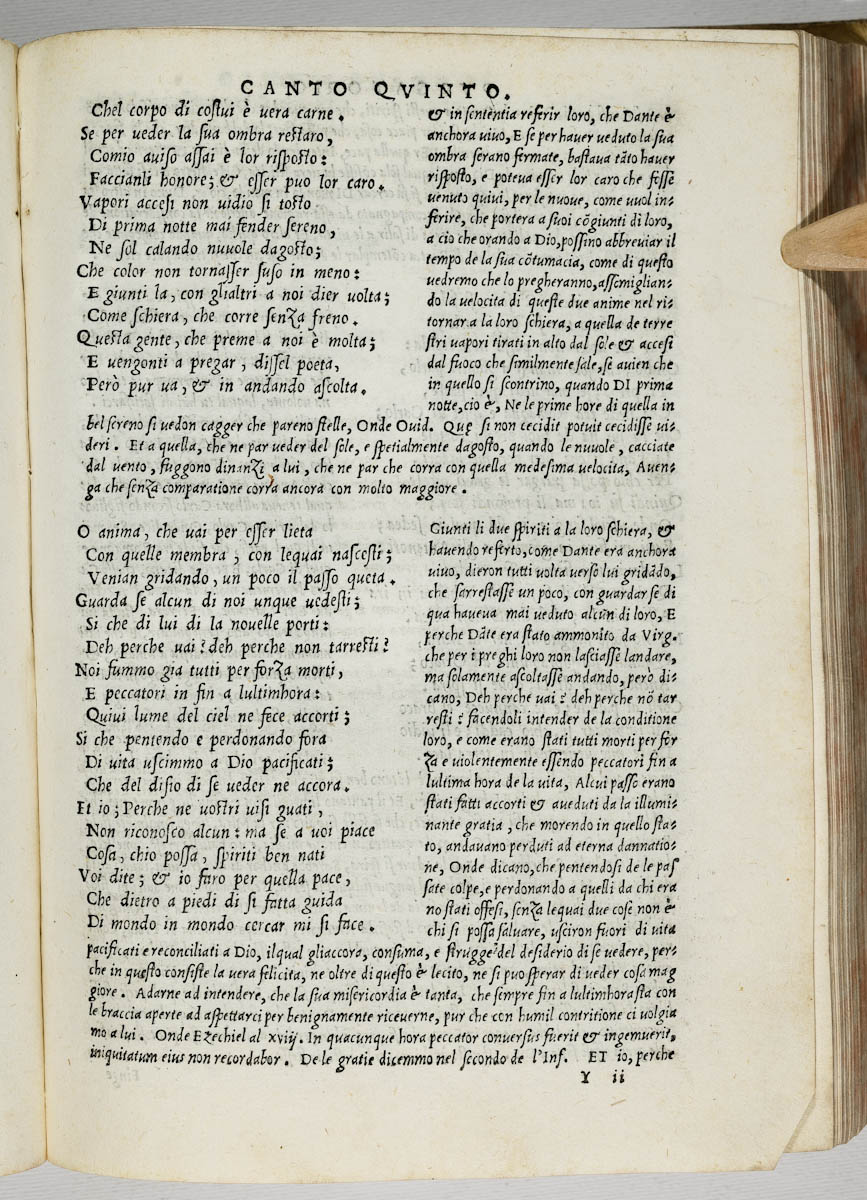 CANTO QVINTO.
Chel corpo di costui è uera carne.
Se per ueder la sua ombra restaro,
Comio auiso assai è lor risposto:
Faccianli honore; & esser puo lor caro.
Vapori accesi non uidio si tosto
Di prima notte mai fender sereno,
Ne sol calando nuuole dagosto;
Che color non tornasser suso in meno:
E giunti la, con glialtri a noi dier uolta;
Come schiera, che corre senza freno.
Questa gente, che preme a noi è molta;
E uengonti a pregar, dissel poeta,
Però pur ua, & in andando ascolta.
& in sententia referir loro, che Dante è
anchora uiuo, E se per hauer ueduto la sua
ombra serano fermate, bastaua tãto hauer
risposto, e poteua esser lor caro che fesse
uenuto quiui, per le nuoue, come uuol in-
ferire, che portera a suoi cõgiunti di loro,
a cio che orando a Dio, possino abbreuiar il
tempo de la sua cõtumacia, come di questo
uedremo che lo pregheranno, assemiglian-
do la uelocita di queste due anime nel ri-
tornar a la loro schiera, a quella de terre
stri uapori tirati in alto dal sole & accesi
dal fuoco che similmente sale, se auien che
in quello si scontrino, quando DI prima
notte, cio è, Ne le prime hore di quella in
bel sereno si uedon cagger che pareno stelle, Onde Ouid. Quę si non cecidit potuit cecidisse ui-
deri. Et a quella, che ne par ueder del sole, e spetialmente dagosto, quando le nuuole, cacciate
dal uento, fuggono dinanzi a lui, che ne par che corra con quella medesima uelocita, Auen-
ga che senza comparatione corra ancora con molto maggiore.
O anima, che uai per esser lieta
Con quelle membra, con lequai nascesti;
Venian gridando, un poco il passo queta.
Guarda se alcun di noi unque uedesti;
Si che di lui di la nouelle porti:
Deh perche uai? deh perche non tarresti?
Noi fummo gia tutti per forza morti,
E peccatori in fin a lultimhora:
Quiui lume del ciel ne fece accorti;
Si che pentendo e perdonando fora
Di uita uscimmo a Dio pacificati;
Che del disio di se ueder ne accora.
Et io; Perche ne uostri uisi guati,
Non riconosco alcun: ma se a uoi piace
Cosa, chio possa, spiriti ben nati
Voi dite; & io faro per quella pace,
Che dietro a piedi di si fatta guida
Di mondo in mondo cercar mi si face.
Giunti li due spiriti a la loro schiera, &
hauendo referto, come Dante era anchora
uiuo, dieron tutti uolta uerso lui gridãdo,
che sarrestasse un poco, con guardar se di
qua haueua mai ueduto alcun di loro, E
perche Dãte era stato ammonito da Virg.
che per i preghi loro non lasciasse landare,
ma solamente ascoltasse andando, però di-
cano, Deh perche uai? deh perche nõ tar
resti? facendoli intender de la conditione
loro, e come erano stati tutti morti per for
za e uiolentemente essendo peccatori fin a
lultima hora de la uita, Alcui passo erano
stati fatti accorti & aueduti da la illumi-
nante gratia, che morendo in quello sta-
to, andauano perduti ad eterna dannatio-
ne, Onde dicano, che pentendosi de le pas
sate colpe, e perdonando a quelli da chi era
no stati offesi, senza lequai due cose non è
chi si possa saluare, usciron fuori di uita
pacificati e reconciliati a Dio, ilqual gliaccora, consuma, e strugge del desiderio di se uedere, per-
che in questo consiste la uera felicita, ne oltre di questo è lecito, ne si puo sperar di ueder cosa mag
giore. Adarne ad intendere, che la sua misericordia è tanta, che sempre fin a lultimhora sta con
le braccia aperte ad aspettarci per benignamente riceuerne, pur che con humil contritione ci uolgia
mo a lui. Onde Ezechiel al xviij. In quacunque hora peccator conuersus fuerit & ingemuerit,
iniquitatum eius non recordabor. De le gratie dicemmo nel secondo de l'Inf. ET io, perche
Y ii